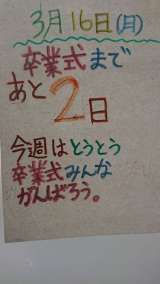 3月16日(月)
卒業式まで
あと2日
今週はとうとう
卒業式みんな
がんばろう。